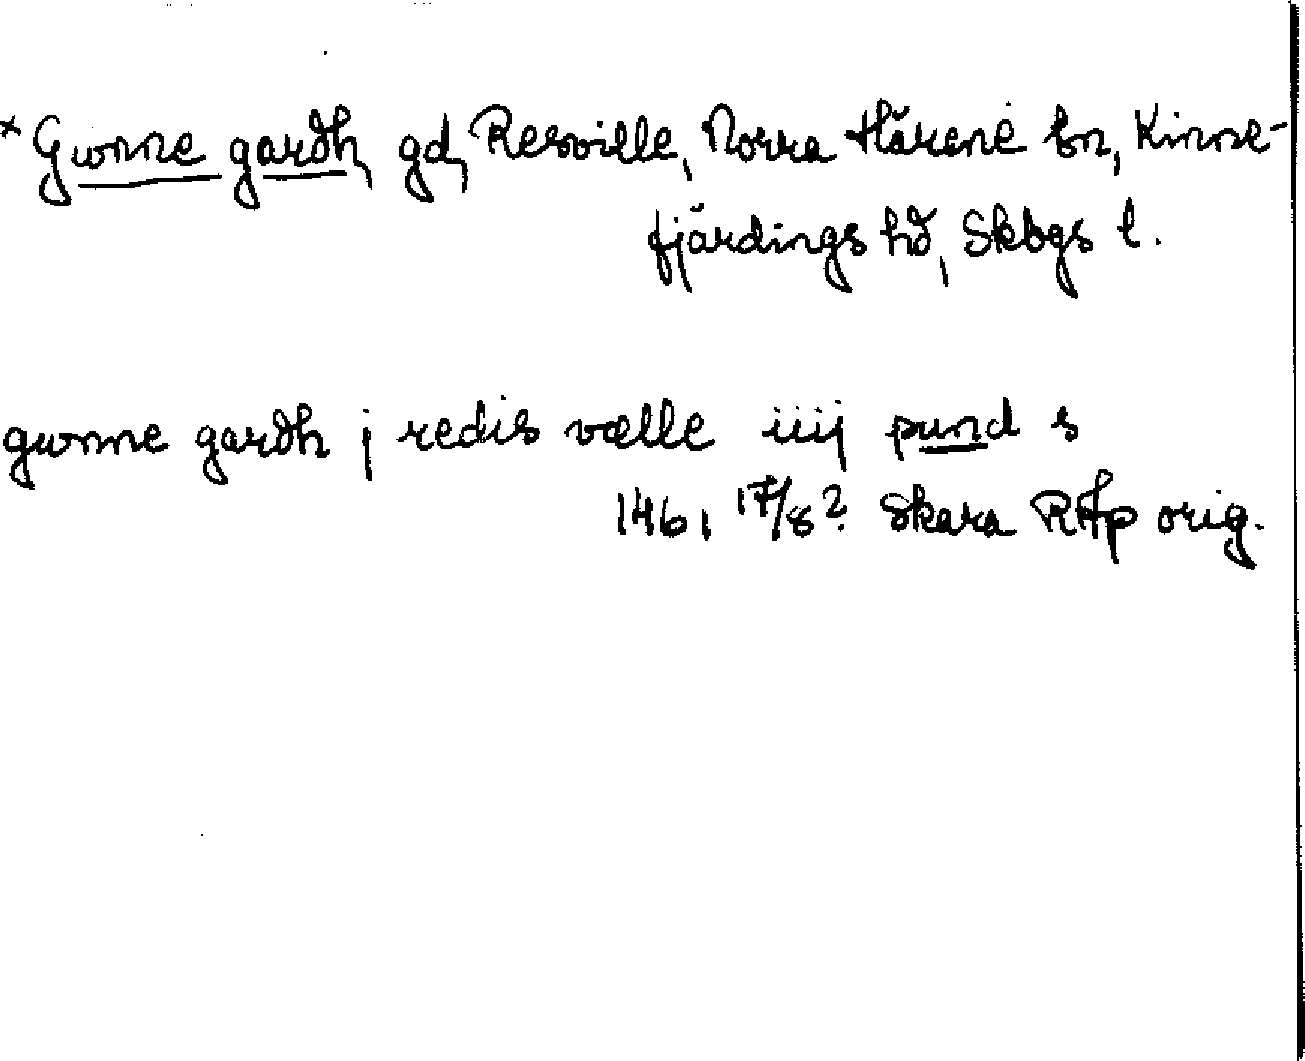 * Gunne gardh, gd, Resville, Norra Härene sn, Kinne-
fjärdings hd, Skbgs l.
gunne gardh j redis vælle iiij pund s
1461 17/8? Skara RAp orig.